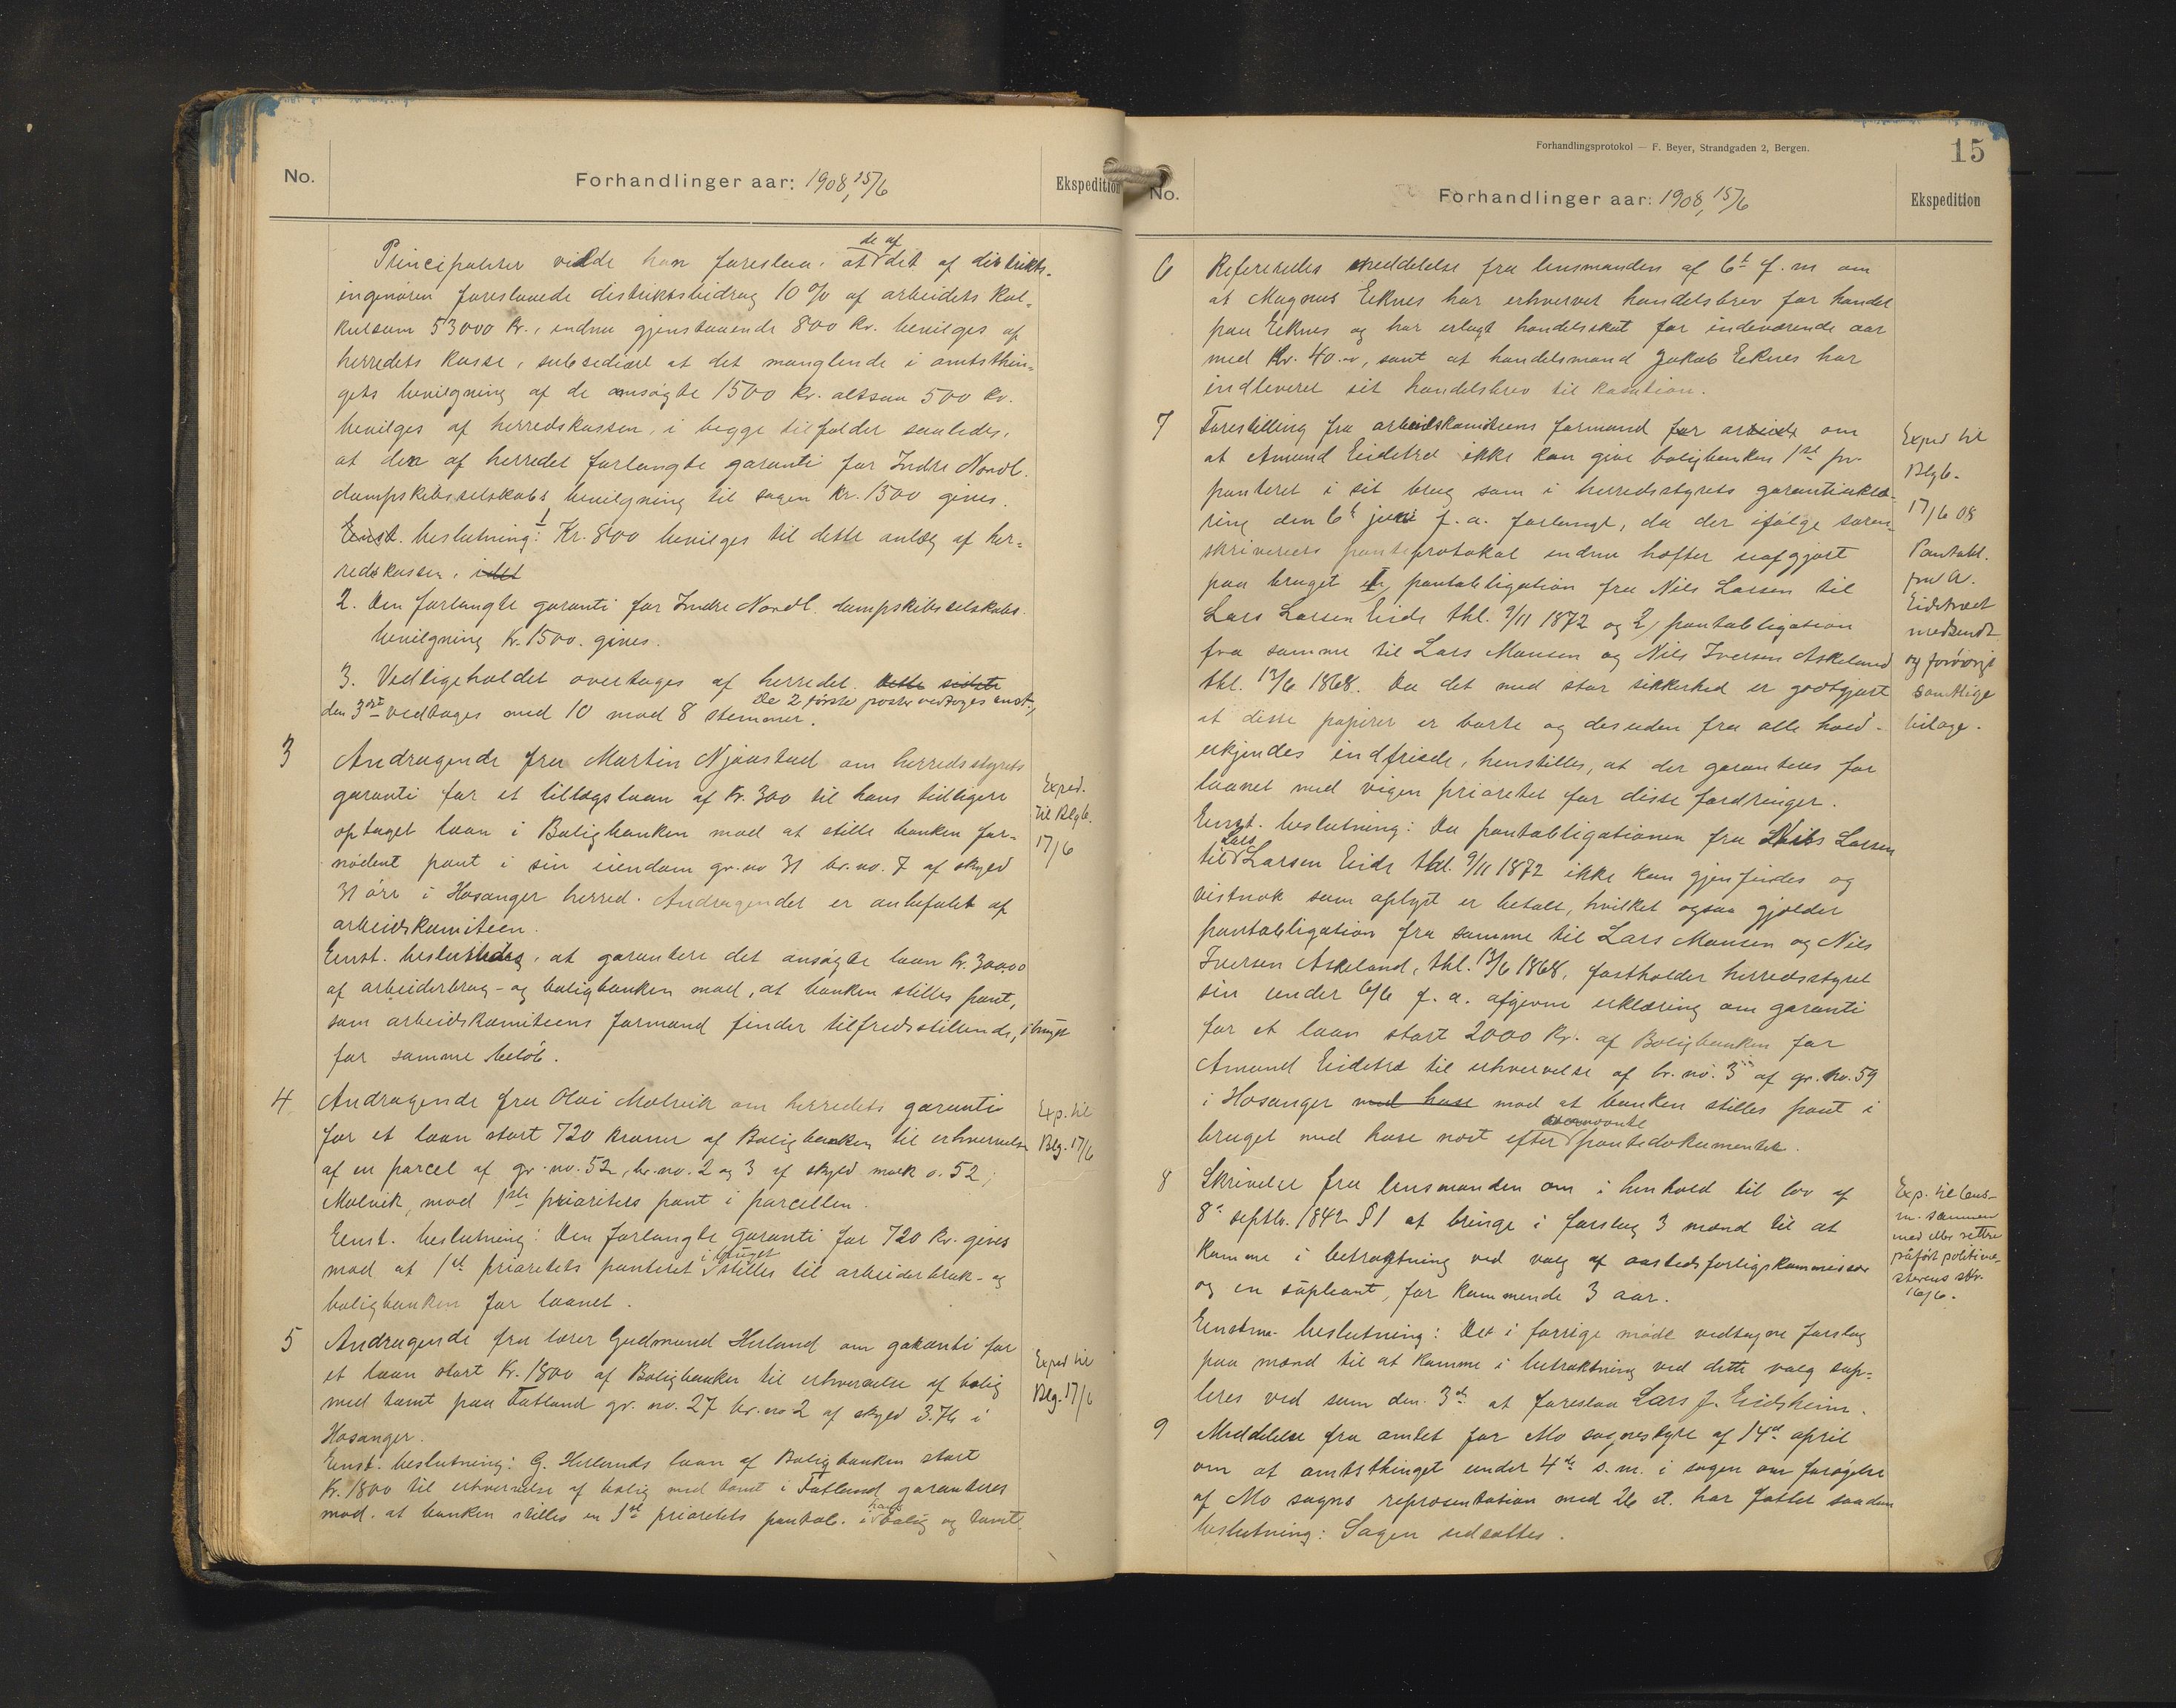 No.
Forhandlinger aar: 1908, 15/6
Ekspedition
Principaliter vilde han foreslaa, at de af det af distrikts-
ingeniøren foreslaaede distriktsbidrag 10 % af arbeidets kal-
kulsum 53000 kr., endnu gjenstaaende 800 kr. bevilges af
herredets kasse, subsediært at det manglende i amtsthin-
gets bevilgning af de ansøgte 1500 kr. altsaa 500 kr.
bevilges af herredskassen, i begge tilfælder saaledes,
at den af herredet forlangte garanti for Indre Nordl.
dampskibsselskabs bevilgning til sagen kr. 1500 gives.
Enst. beslutning: 1, Kr. 800 bevilges til dette anlæg af her-
redskassen, idet
2. Den forlangte garanti for Indre Nordl. dampskibsselskabs
bevilgning kr. 1500. gives.
3. Vedligeholdet overtages af herredet. Dette sidste
De 2 første poster vedtoges enst.,
den 3die vedtages med 10 mod 8 stemmer.
3 Andragende fra Martin Njaastad om herredsstyrets
garanti for et tillægslaan af kr. 300 til hans tidligere
optaget laan i Boligbanken mod at stille banken for-
nødent pant i sin eiendom gr. no 31 br. no. 7 af skyld
31 øre i Hosanger herred. Andragendet er anbefalet af
arbeidskomiteen.
Exped.
til Blgb.
17/6
Enst. besluttedes, at garantere det ansøgte laan kr. 300.00
af arbeiderbrug- og boligbanken mod, at banken stilles pant,
som arbeidskomiteens formand finder tilfredsstillende, i bruget
for samme beløb.
4 Andragende fra Olai Molvik om herredets garanti
for et laan stort 720 kroner af Boligbanken til erhvervelse
af en parcel af gr. no. 52, br. no. 2 og 3 af skyld mark 0.52,
Molvik, mod 1ste prioritets pant i parcellen.
Exp. til
Blg. 17/6
Enst. beslutning: Den forlangte garanti for 720 kr. gives
mod at 1st prioritets panteret i bruget stilles til arbeiderbruk- og
boligbanken for laanet.
5 Andragende fra lærer Gudmund Herland om garanti for
et laan stort kr. 1800 af Boligbanken til erhvervelse af bolig
med tomt paa Fatland gr. no. 27 br. no 2 af skyld 3.76 i
Hosanger.
Exped til
Blg. 17/6
Enst. beslutning: G. Herlands laan af Boligbanken stort
Kr. 1800 til erhvervelse af bolig med tomt i Fatland garanteres
mod. at banken stilles en 1st prioritets pantob. i hans bolig og tomt.
Forhandlingsprotokol — F. Beyer, Strandgaden 2, Bergen.
15
No.
Forhandlinger aar: 1908, 15/6
Ekspedition
6 Refereredes meddelelse fra lensmanden af 6t f. m om
at Magnus Eknes har erhvervet handelsbrev for handel
paa Eknes og har erlagt handelsskat for indeværende aar
med Kr. 40.00, samt at handelsmand Jakob Eknes har
indleveret sit handelsbrev til kasation.
7 Forestilling fra arbeidskomiteens formand for arbeids om
at Amund Eidetræ ikke kan give boligbanken 1ste pr.
panteret i sit brug som i herredsstyrets garantierklæ-
ring den 6t juni f. a. forlangt, da der ifølge soren-
skriverens panteprotokol endnu hæfter uafgjort
paa bruget 1, pantobligation fra Nils Larsen til
Lars Larsen Eide thl. 9/11 1872 og 2, pantobligation
fra samme til Lars Monsen og Nils Iversen Askeland
thl. 13/6 1868. Da det med stor sikkerhed er godtgjort
at disse papirer er borte og desuden fra alle hold
erkjendes indfriede, henstilles, at der garanteres for
laanet med vigen prioritet for disse fordringer.
Exped til
Blgb.
17/6 08
Pantobl.
fra A.
Eidetræet
medsendt
og forøvrigt
samtlige
bilage.
Enst. beslutning: Da pantobligationen fra Nils Larsen
til Lars Larsen Eide thl. 9/11 1872 ikke kan gjenfindes og
vistnok som oplyst er betalt, hvilket ogsaa gjælder
pantobligation fra samme til Lars Monsen og Nils
Iversen Askeland, thl. 13/6 1868, fastholder herredsstyret
sin under 6/6 f. a. afgivne erklæring om garanti
for et laan stort 2000 Kr. af Boligbanken for
Amund Eidetræ til erhvervelse af br. no. 3 af gr. no. 59
i Hosanger med huse mod at banken stilles pant i
bruget med huse næst efter ovennævnte pantedokumenter.
8 Skrivelse fra lensmanden om i henhold til lov af
8de septbr. 1842 § 1 at bringe i forslag 3 mænd til at
komme i betragtning ved valg af aastedsforligskommissær
og en supleant, for kommende 3 aar.
Exp. til lens-
m. sammen
med
påført politime-
sterens skr.
16/6.
Enstem. beslutning: Det i forrige møde vedtagne forslag
paa mænd til at komme i betraktning ved dette valg sup-
leres ved som den 3de at foreslaa Lars J. Eidsheim.
9 Meddelelse fra amtet for Mo sognestyre af 14de april
om at amtsthinget under 4de s. m. i sagen om forøgelse
af Mo sogns repræsentation med 26 st. har fattet saadan
beslutning: Sagen udsættes.